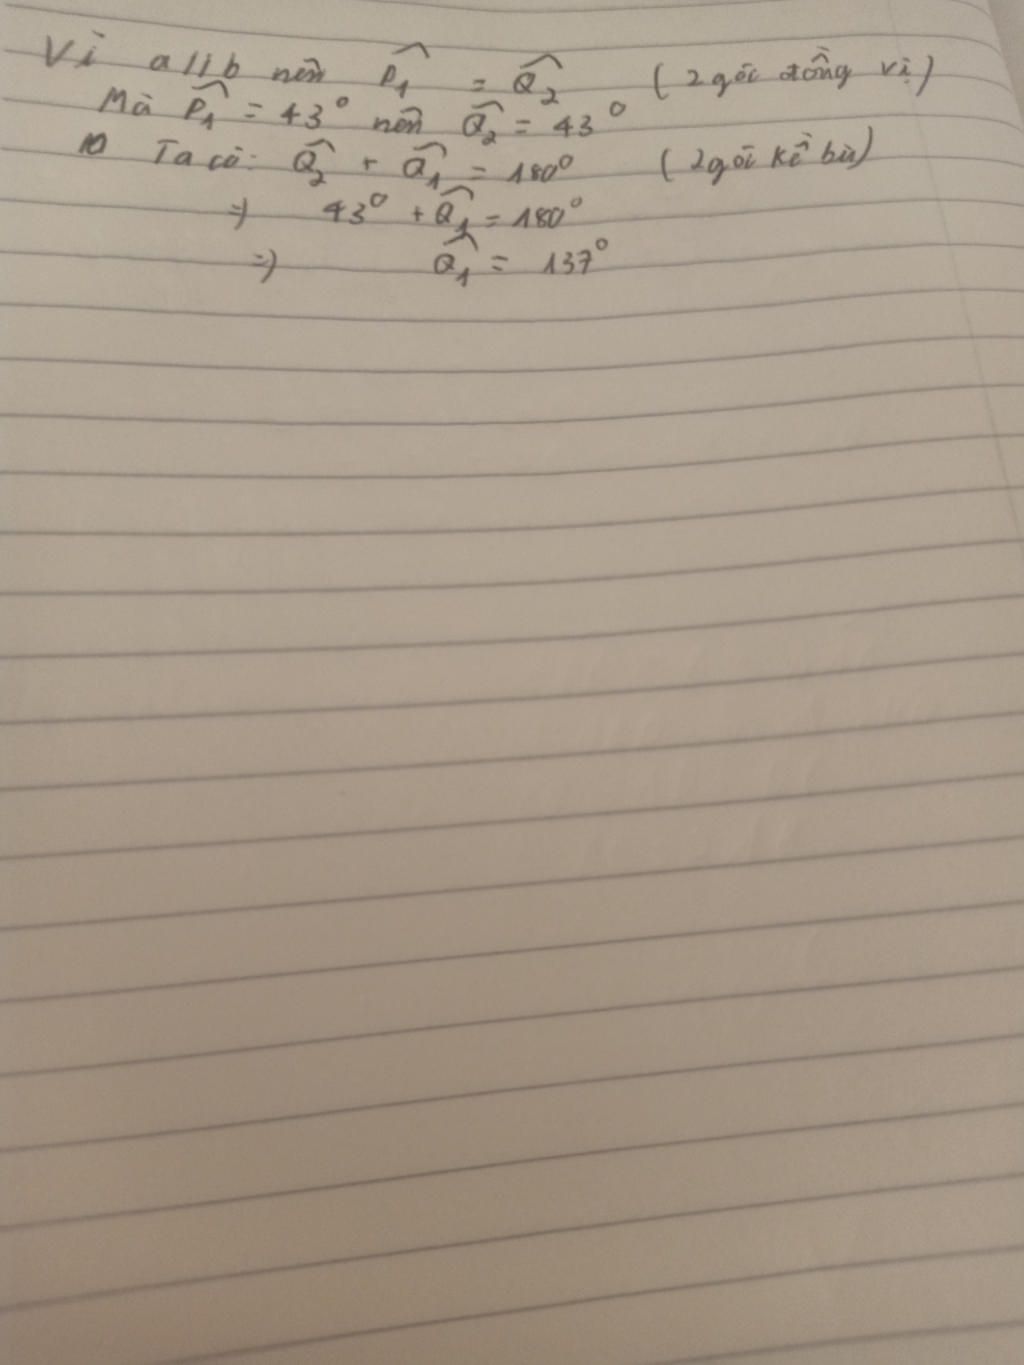 Vì a//b nên P̂₁ = Q̂₂ (2 góc đồng vị)
Mà P̂₁ = 43° nên Q̂₂ = 43°
Ta có: Q̂₂ + Q̂₁ = 180° (2 góc kề bù)
=> 43° + Q̂₁ = 180°
=> Q̂₁ = 137°